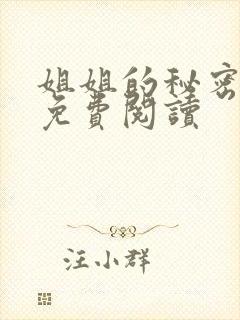 姐姐的秘密
免費閱讀
汪小群